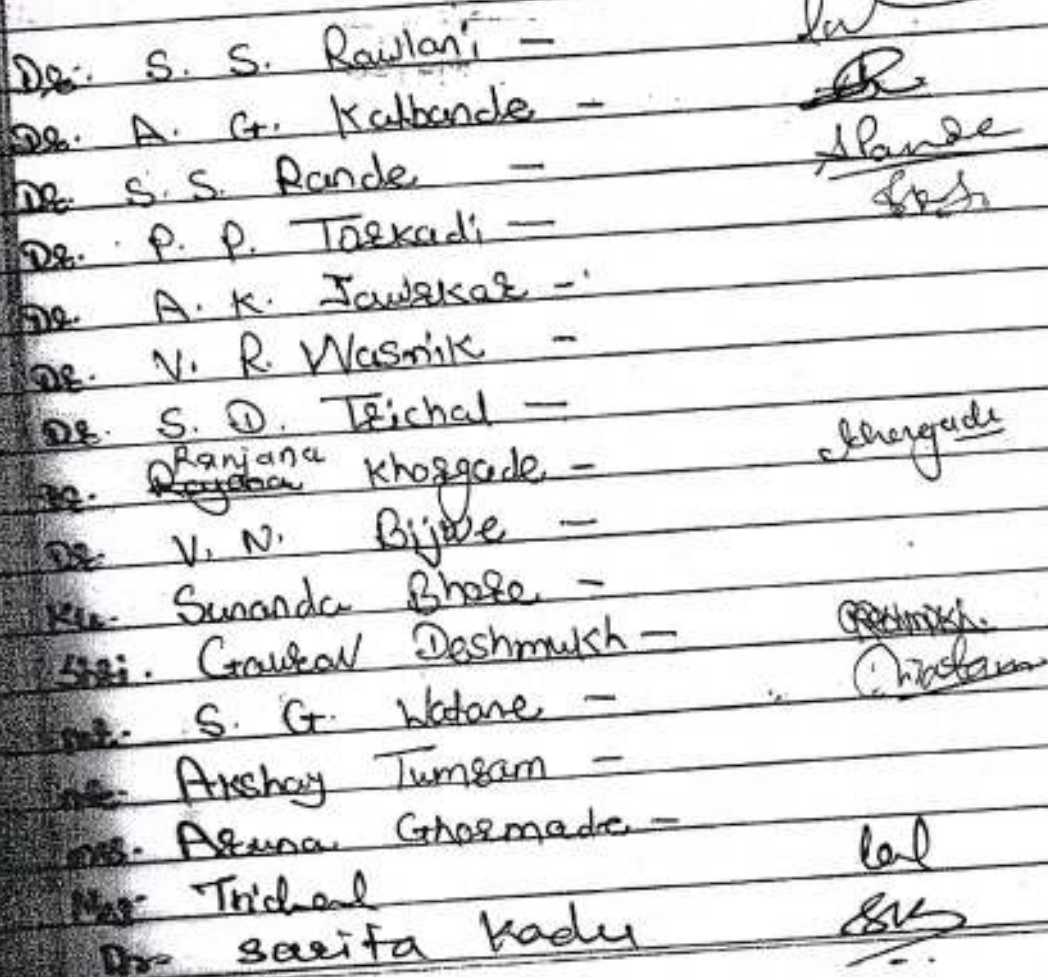 Dr. S. S. Rawlani -
Dr. A. G. Kalbande -
Dr. S. S. Pande - SPande
Dr. P. P. Torkadi -
Dr. A. K. Jawrkar -
Dr. V. R. Wasnik -
Dr. S. D. Trichal -
Dr. Ranjana Khorgade - Khorgade
Dr. V. N. Bijwe -
Ku. Sunanda Bhore -
Shri. Gaurav Deshmukh - Deshmukh.
Smt. S. G. Watane -
Mr. Akshay Tumram -
Mrs. Aruna Ghormade -
Mr. Tricheal
Dr. Sarita Kadu